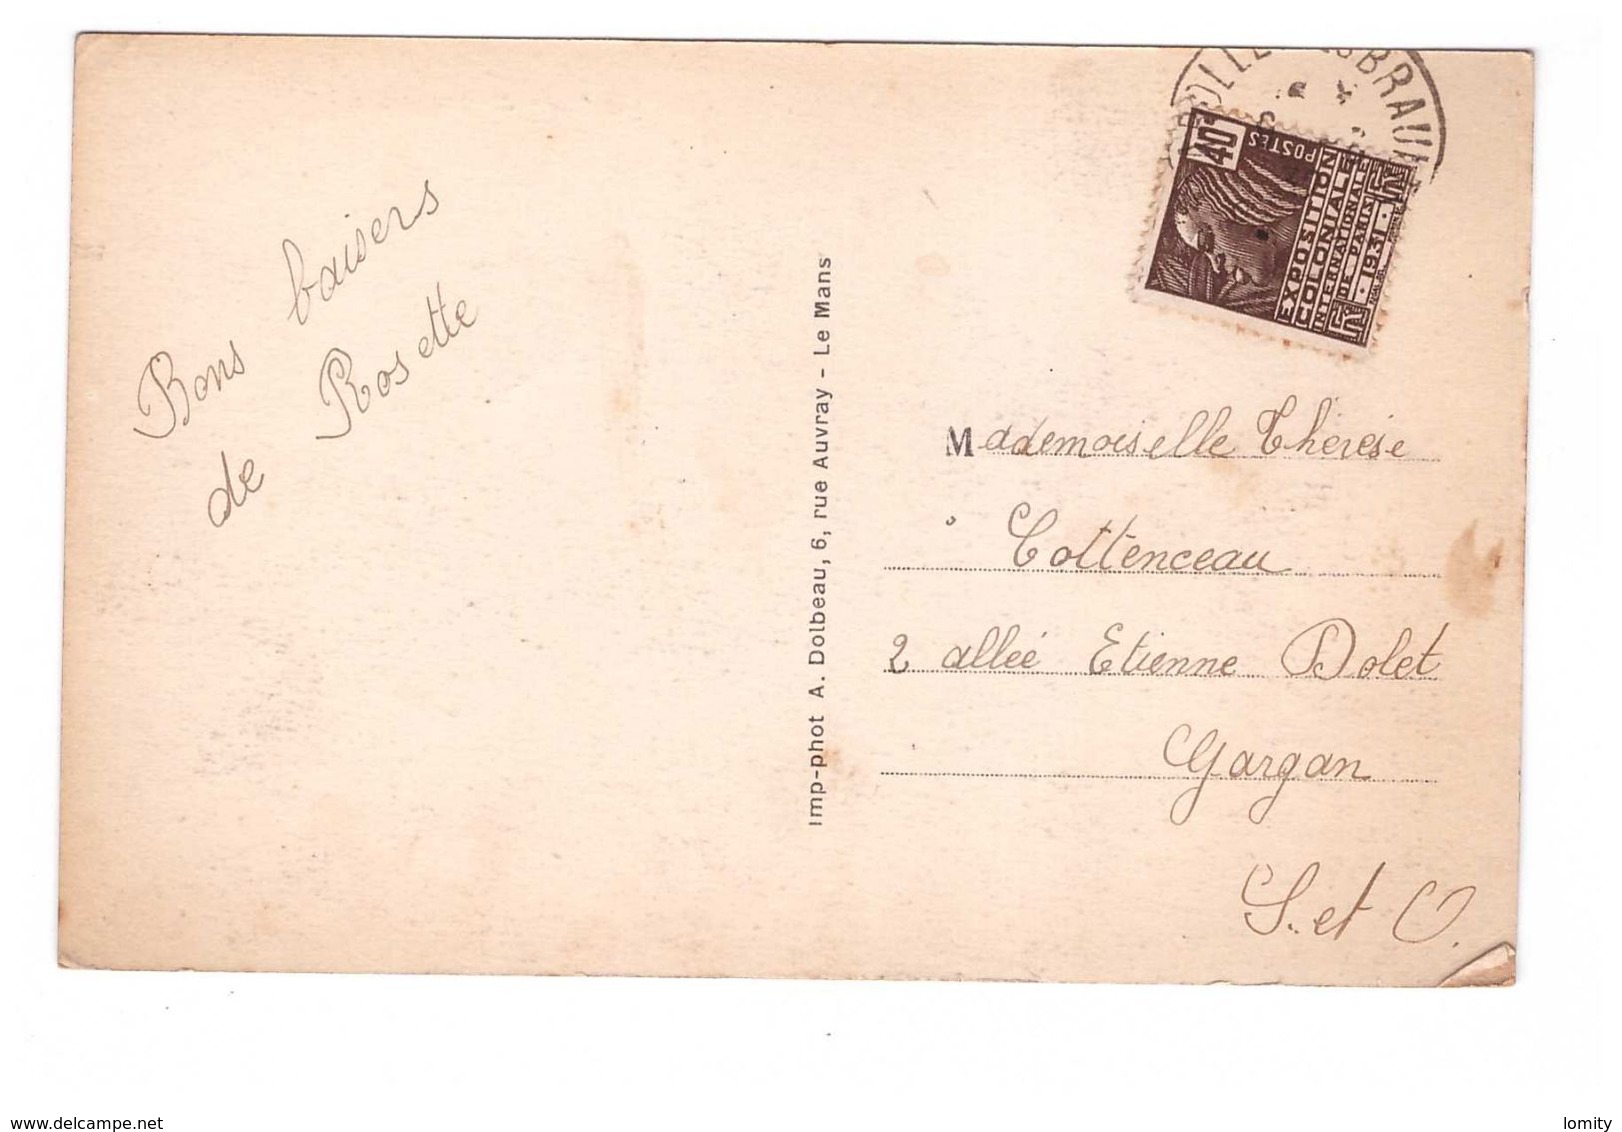 Bons baisers
de Rosette
Imp-phot A. Dolbeau, 6, rue Auvray - Le Mans
40c
POSTES
EXPOSITION
COLONIALE
INTERNATIONALE
DE PARIS
1931
Mademoiselle Thérèse
Cottenceau
2 allée Etienne Dolet
Gargan
S. et O.
www.delcampe.net
lomity